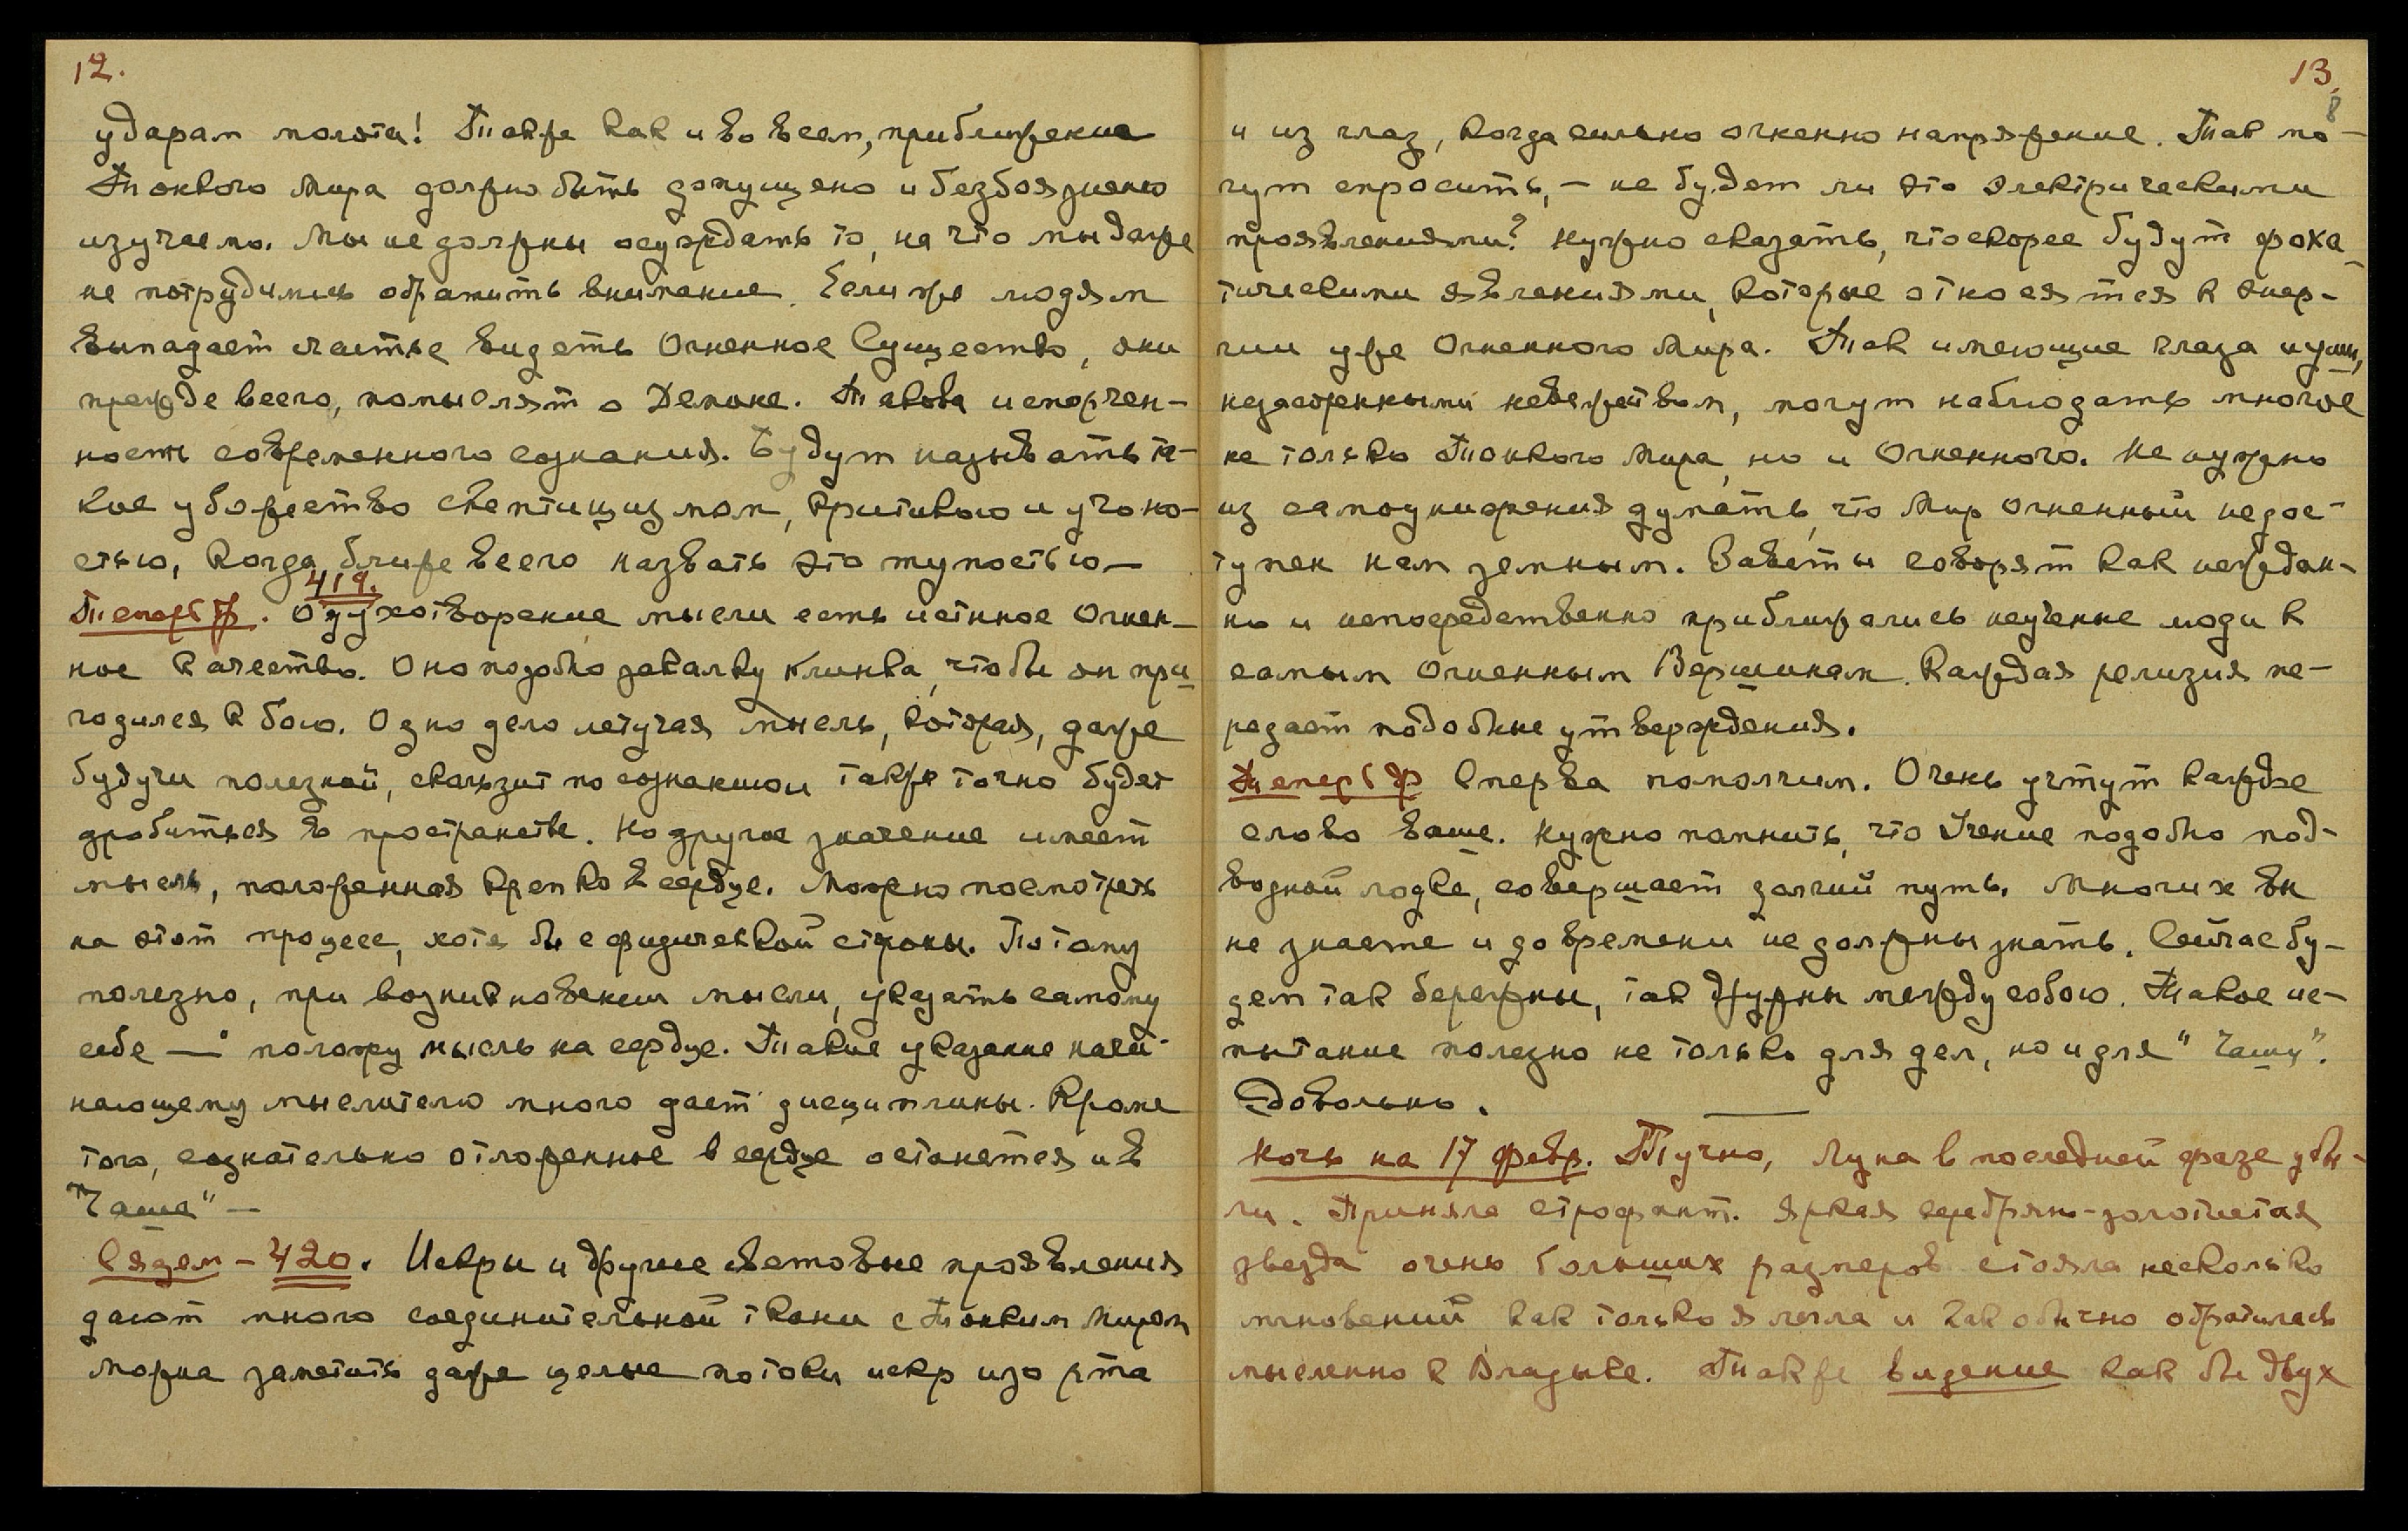 12.
ударам молота! Также как и во всем, приближение
Тонкого Мира должно быть допущено и безбоязненно
изучаемо. Мы не должны осуждать то, на что мы даже
не потрудились обратить внимание. Если же людям
выпадает счастье видеть Огненное Существо, они
прежде всего, помыслят о Демоне. Такова испорчен-
ность современного сознания. Будут называть та-
кое убожество скептицизмом, критикою и учено-
стью, когда ближе всего назвать это тупостью —
419.
Теперь Ф. Одухотворение мысли есть истинное Огнен-
ное качество. Оно подобно закалку клинка, чтобы он при
годился к бою. Одно дело летучая мысль, которая, даже
будучи полезной, скользит по сознанию и также точно будет
дробиться в пространстве. Но другое значение имеет
мысль, положенная крепко в сердце. Можно посмотреть
на этот процесс, хотя бы с физической стороны. Потому
полезно, при возникновении мысли, указать самому
себе — положу мысль на сердце. Такие указание начи-
нающему мыслителю много дает дисциплины. Кроме
того, сознательно отложенное в сердце останется и в
"Чаше" —
Сядем — 420. Искры и другие световые проявления
дают много соединительной ткани с Тонким Миром
Можна заметить даже целые потоки искр изо рта
13.
8
и из глаз, когда сильно огненно напряжение. Так мо-
гут спросить, — не будет ли это электрическими
проявлениями? Нужно сказать, что скорее будут фоха-
тическими явлениями, которые относятся к энер-
гии уже Огненного Мира. Так имеющие глаза и уши,
незасоренными неверейством, могут наблюдать многое
не только Тонкого Мира, но и Огненного. Не нужно
из самоунижения думать, что Мир Огненный недос-
тупен нам земным. Заветы говорят как неждан-
но и непосредственно приближались неученые люди к
самым Огненным Вершинам. Каждая религия пе-
редает подобные утверждения.
Теперь Ф Сперва помолчим. Очень учтут каждое
слово ваше. Нужно помнить, что Учение подобно под-
водной лодке, совершает долгий путь. Многих вы
не знаете и до времени не должны знать. Сейчас бу-
дем так бережны, так дружны между собою. Такое ис-
пытание полезно не только для дел, но и для "Чаши".
Довольно.
Ночь на 17 февр. Тучно, Луна в последней фазе убы-
ли. Приняла строфант. Яркая серебряно-золотистая
звезда очень больших размеров стояла несколько
мгновений как только я легла и как обычно обратилась
мысленно к Владыке. Также видение как бы двух